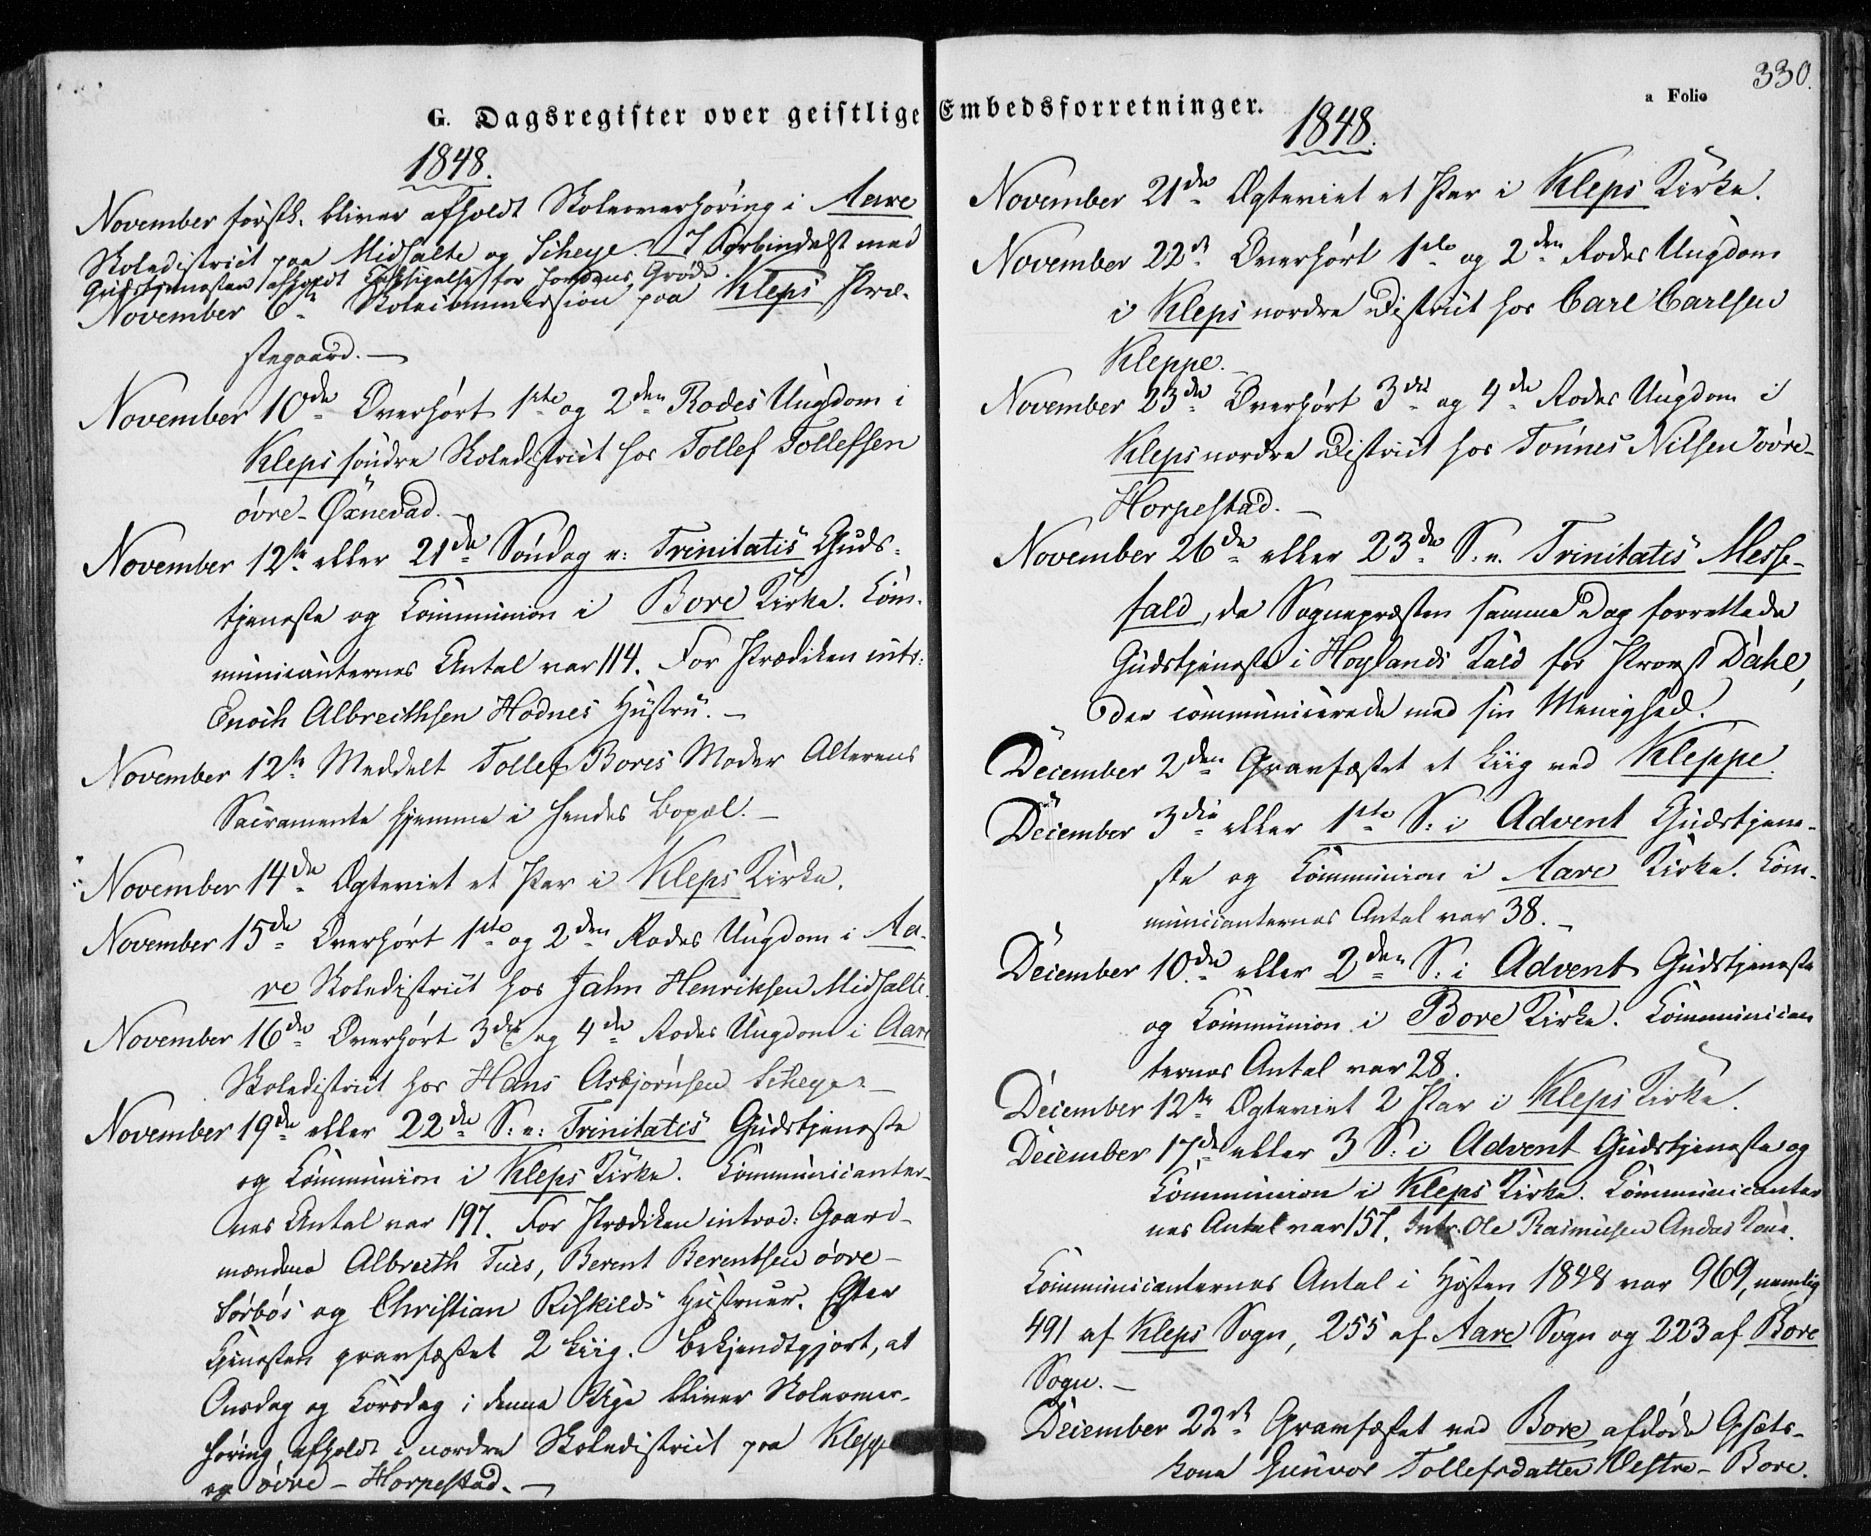 G. Dagsregister over geistlige Embedsforretninger.
a Folio
330.
1848.
November førstk. bliver afholdt Skoleoverhøring i Aare
Skoledistrict paa Midhalte og Scheye. I Forbindelse med
Gudstjenesten afholdt Taksigelse for Jordens Grøde.
November 6te Skolecommission paa Kleps Præ-
stegaard. —
November 10de Overhørt 1ste og 2den Rodes Ungdom i
Kleps søndre Skoledistrict hos Tollef Tollefsen
øvre-Øxnevad. —
November 12te eller 21de Søndag e: Trinitatis Guds-
tjeneste og Communion i Bore Kirke. Com-
municanternes Antal var 114. For Prædiken intr:
Enoch Albrecthsen Hodnes Hustru. —
November 12te Meddelt Tollef Bores Moder Alterens
Sacramente hjemme i hendes Bopæl. —
November 14de Ægteviet et Par i Kleps Kirke.
November 15de Overhørt 1ste og 2den Rodes Ungdom i Aa-
re Skoledistrict hos Jahn Henriksen Midhalte.
November 16de Overhørt 3die og 4de Rodes Ungdom i Aare
Skoledistrict hos Hans Asbjørnsen Scheye. —
November 19de eller 22de S. e: Trinitatis Gudstjeneste
og Communion i Kleps Kirke. Communicanter-
nes Antal var 197. For Prædiken introd: Gaard-
mændene Albrecth Tues, Berent Berentsen øvre-
Sørbøs og Christian Riskilds Hustruer. Efter
Tjenesten gravfæstet 2 Liig. Bekjendtgjort, at
Onsdag og Torsdag i denne Uge bliver Skoleover-
høring afholdt i nordre Skoledistrict paa Kleppe
og øvre-Horpestad. —
1848.
November 21de Ægteviet et Par i Kleps Kirke.
November 22de Overhørt 1ste og 2den Rodes Ungdom
i Kleps nordre District hos Carl Carlsen
Kleppe.
November 23de Overhørt 3die og 4de Rodes Ungdom i
Kleps nordre District hos Tønnes Nilsen øvre-
Horpestad. —
November 26de eller 23de S. e. Trinitatis Messe-
fald, da Sognepræsten samme Dag forrettede
Gudstjeneste i Høylands Kald for Provst Dahl,
der communicerede med sin Menighed.
December 2den Gravfæstet et Liig ved Kleppe.
December 3die eller 1ste S: i Advent Gudstjene-
ste og Communion i Aare Kirke. Com-
municanternes Antal var 38. —
December 10de eller 2den S: i Advent Gudstjeneste
og Communion i Bore Kirke. Communican
ternes Antal var 28.
December 12te Ægteviet 2 Par i Kleps Kirke.
December 17de eller 3 S: i Advent Gudstjeneste og
Communion i Kleps Kirke. Communicanter
nes Antal var 157. Intr. Ole Rasmusen Andas Kone.
Communicanternes Antal i Høsten 1848 var 969, nemlig
491 af Kleps Sogn, 255 af Aare Sogn og 223 af Bore
Sogn. —
December 22de Gravfæstet ved Bore afdøde
kone Gunvor Tollefsdatter Vestre-Bore.